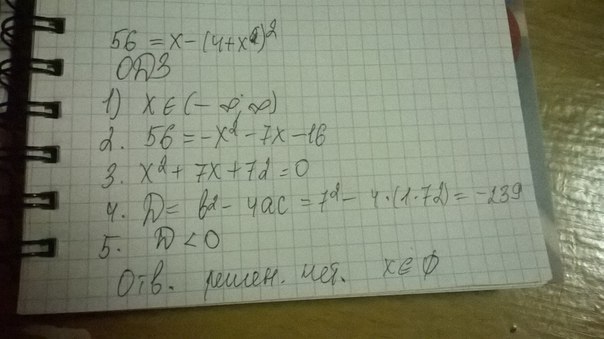 56 = x - (4+x)²
ОДЗ
1) x ∈ (-∞; ∞)
2. 56 = -x² - 7x - 16
3. x² + 7x + 72 = 0
4. D = b² - 4ac = 7² - 4·(1·72) = -239
5. D < 0
Отв. решен. нет. x ∈ ∅